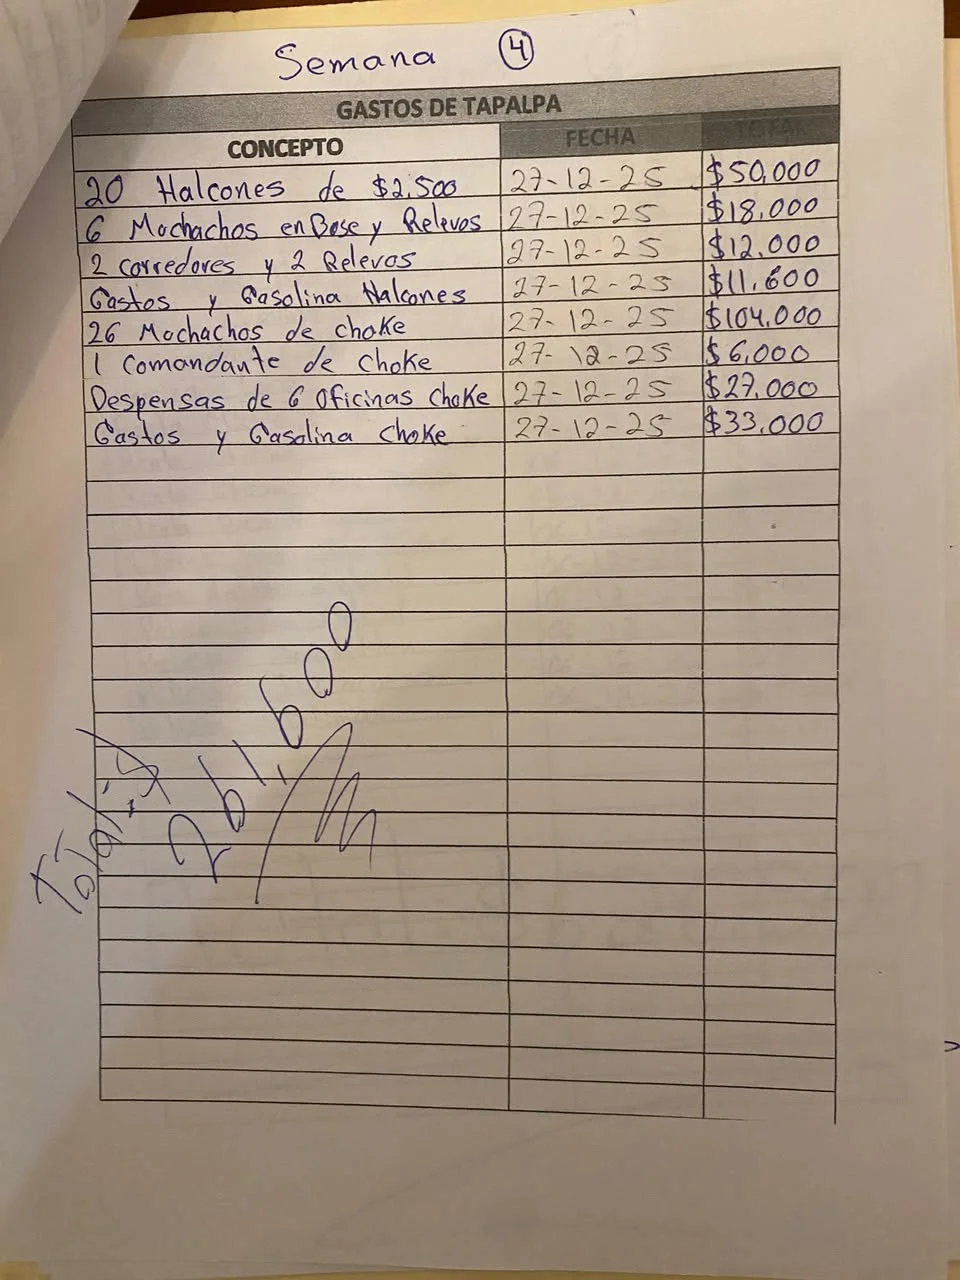 Semana 4
GASTOS DE TAPALPA
CONCEPTO FECHA TOTAL
20 Halcones de $2,500 27-12-25 $50,000
6 Mochachos en Base y Relevos 27-12-25 $18,000
2 corredores y 2 Relevos 27-12-25 $12,000
Gastos y Gasolina Halcones 27-12-25 $11,600
26 Mochachos de choke 27-12-25 $104,000
1 Comandante de choke 27-12-25 $6,000
Despensas de 6 oficinas choke 27-12-25 $27,000
Gastos y Gasolina choke 27-12-25 $33,000
Total:$
261,600